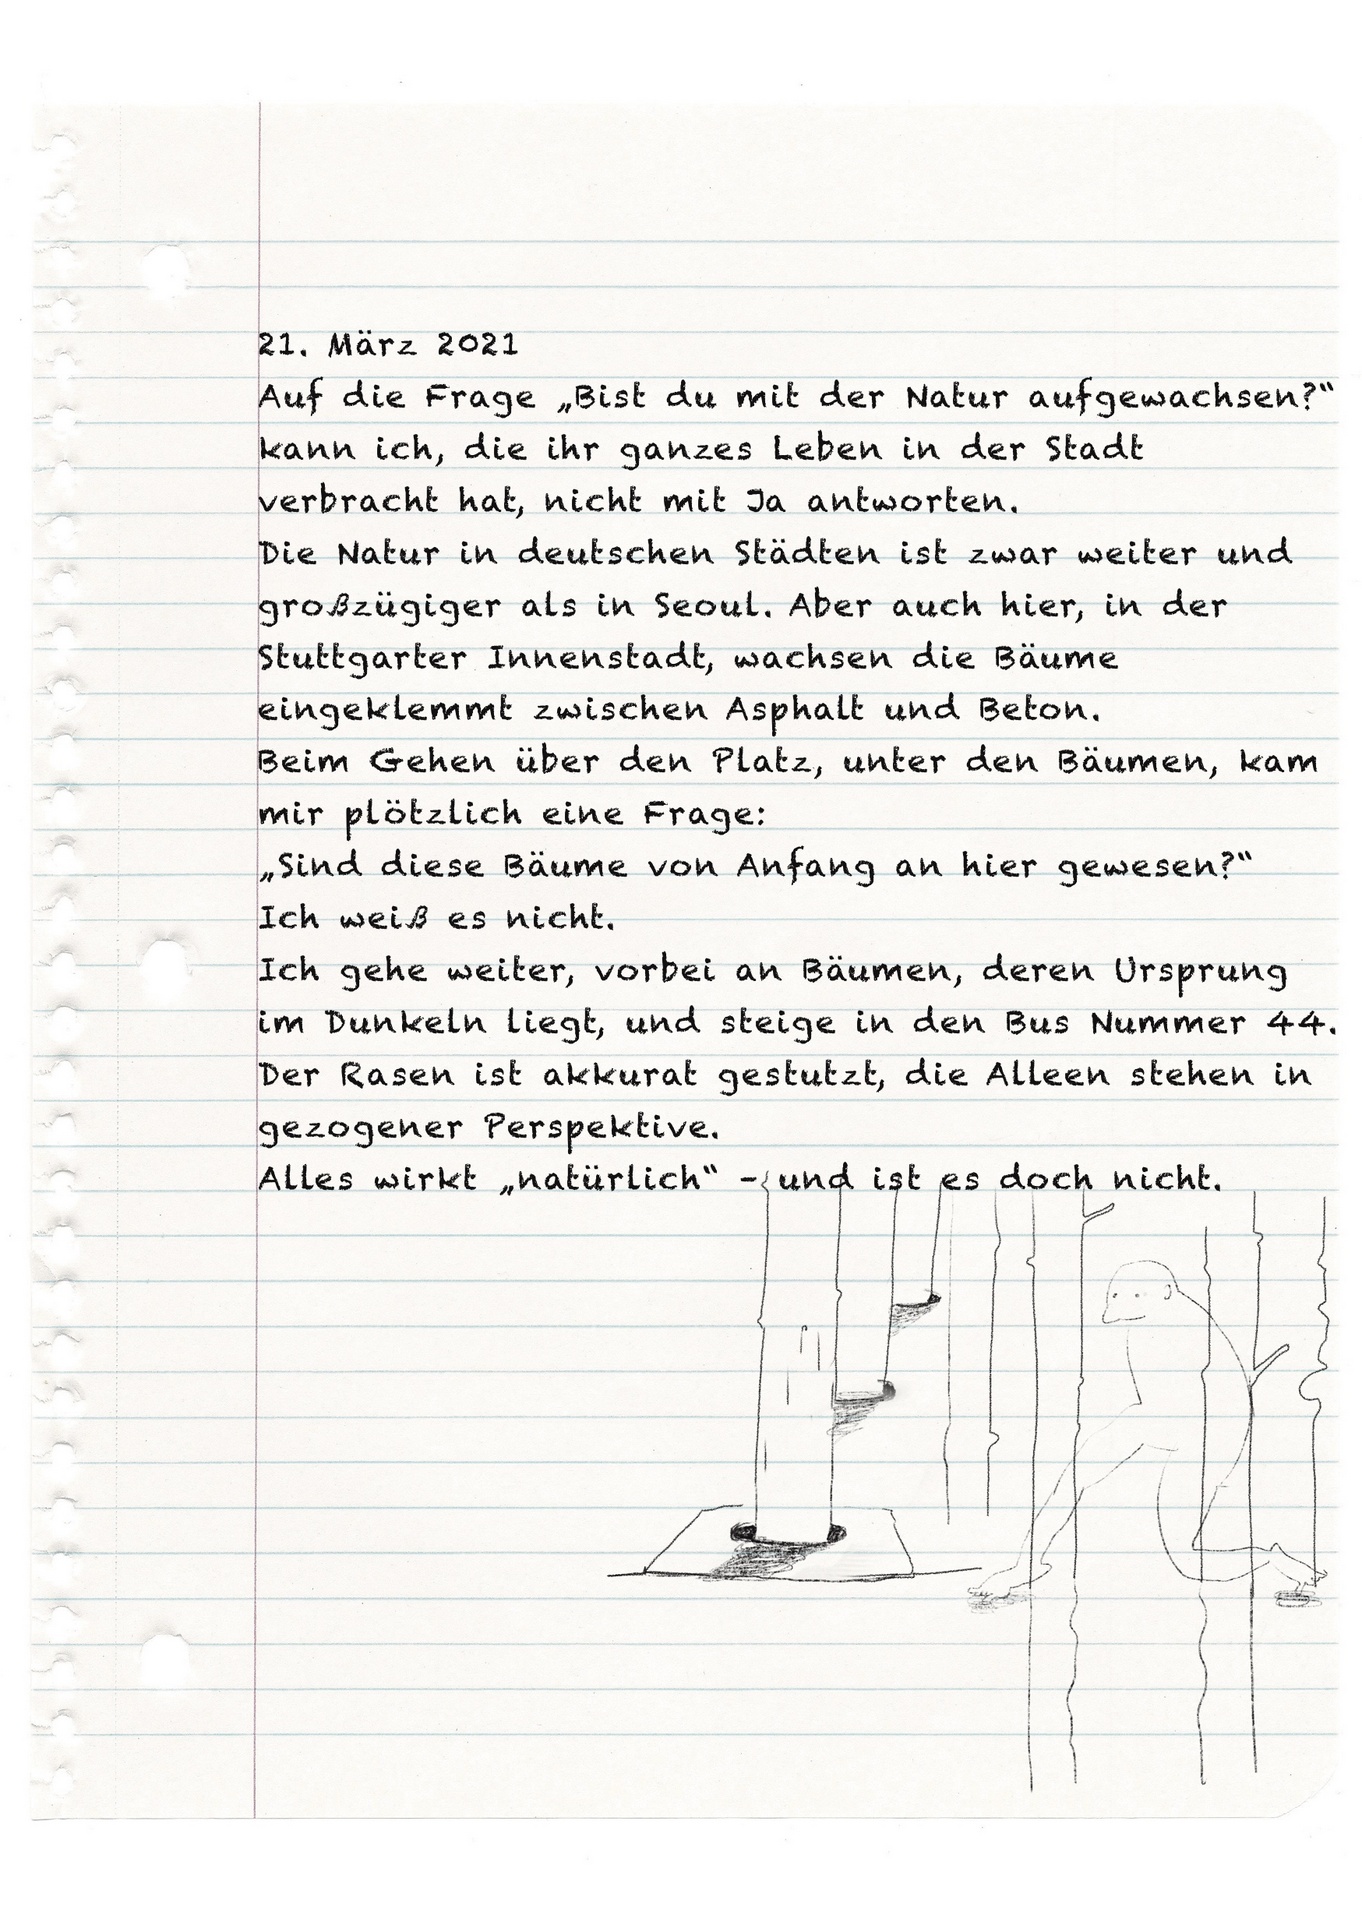 21. März 2021
Auf die Frage „Bist du mit der Natur aufgewachsen?“
kann ich, die ihr ganzes Leben in der Stadt
verbracht hat, nicht mit Ja antworten.
Die Natur in deutschen Städten ist zwar weiter und
großzügiger als in Seoul. Aber auch hier, in der
Stuttgarter Innenstadt, wachsen die Bäume
eingeklemmt zwischen Asphalt und Beton.
Beim Gehen über den Platz, unter den Bäumen, kam
mir plötzlich eine Frage:
„Sind diese Bäume von Anfang an hier gewesen?“
Ich weiß es nicht.
Ich gehe weiter, vorbei an Bäumen, deren Ursprung
im Dunkeln liegt, und steige in den Bus Nummer 44.
Der Rasen ist akkurat gestutzt, die Alleen stehen in
gezogener Perspektive.
Alles wirkt „natürlich“ – und ist es doch nicht.